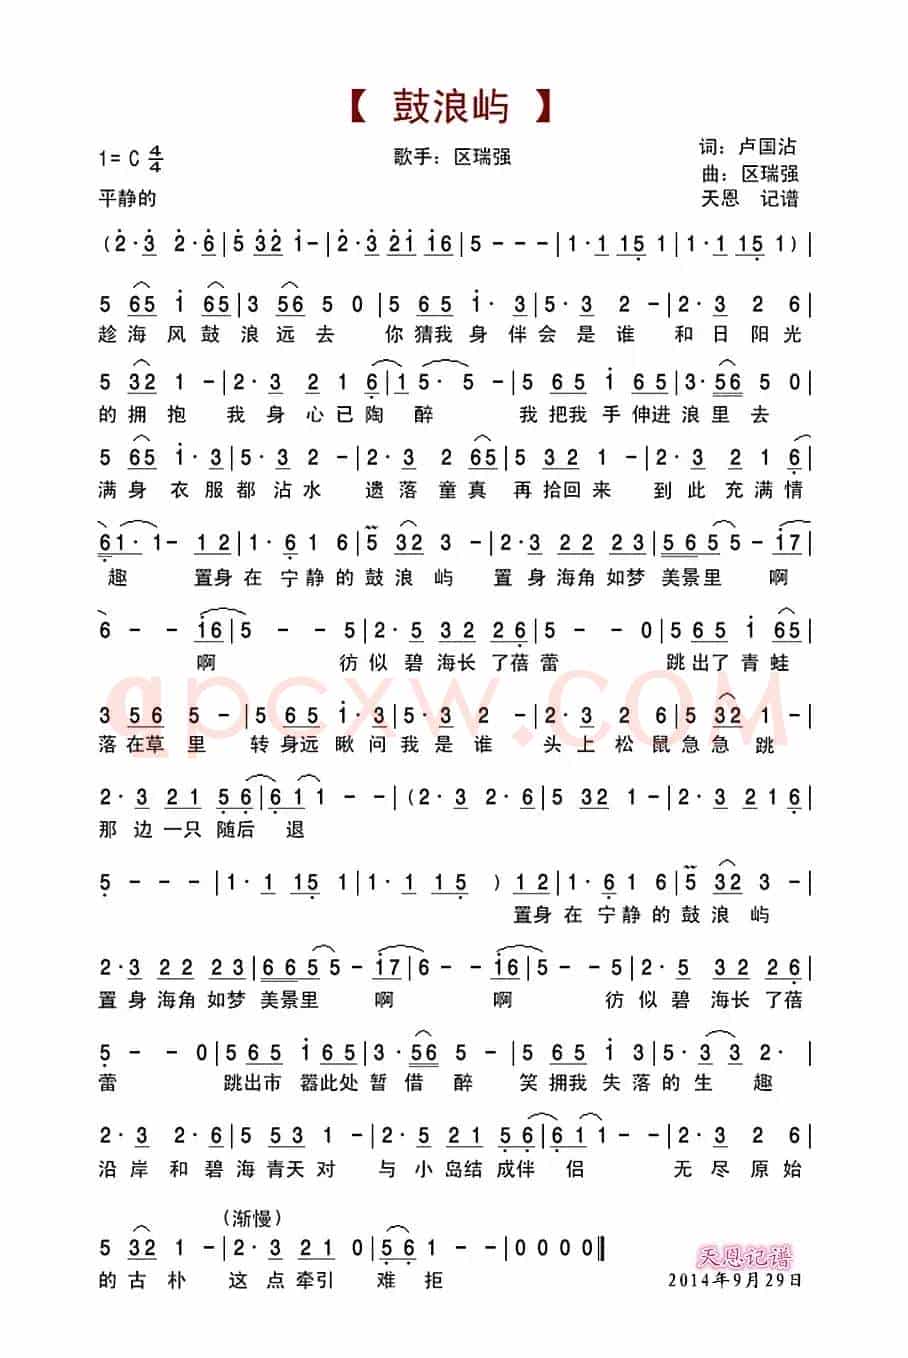 【 鼓浪屿 】
1= C 4/4
歌手：区瑞强
词：卢国沾
曲：区瑞强
平静的
天恩 记谱
(2·3 2·6|5 32 1-|2·3 21 16|5 - - -|1·1 15 1|1·1 15 1)|
5 65 i 65|3 56 5 0|5 65 i· 3|5· 3 2 -|2· 3 2 6|
趁海风鼓浪远去 你猜我身伴会是谁 和日阳光
5 32 1 -|2· 3 2 1 6|1 5· 5 -|5 65 i 65|3· 56 5 0|
的拥抱 我身心已陶醉 我把我手伸进浪里去
5 65 i· 3|5· 3 2 -|2· 3 2 65|5 32 1 -|2· 3 2 1 6|
满身衣服都沾水 遗落童真再拾回来 到此充满情
61· 1- 12|1· 6 1 6|5 32 3 -|2·3 22 23|665 5- i7|
趣 置身在宁静的鼓浪屿 置身海角如梦美景里 啊
6 - - i6|5 - - 5|2· 5 32 26|5 - - 0|5 65 i 65|
啊 彷似碧海长了蓓蕾 跳出了青蛙
3 56 5 -|5 65 i· 3|5· 3 2 -|2· 3 2 6|5 32 1 -|
落在草里 转身远瞅问我是谁 头上松鼠急急跳
2· 3 21 56|61 1 - -|(2·3 2·6|5 32 1 -|2·3 21 16|
那边一只随后退
5 - - -|1·1 15 1|1·1 15 )12|1· 6 1 6|5 32 3 -|
置身在宁静的鼓浪屿
2·3 22 23|665 5- i7|6 - - i6|5 - - 5|2· 5 32 26|
置身海角如梦美景里 啊 啊 彷似碧海长了蓓
5 - - 0|565 i 65|3· 56 5 -|5 65 i 3|5· 3 3 2·|
蕾 跳出市嚣此处暂借醉 笑拥我失落的生趣
2· 3 2· 6|5 53 1 -|2· 5 21 56|61 1 -|2· 3 2 6|
沿岸和碧海青天对 与小岛结成伴侣 无尽原始
(渐慢)
5 32 1 -|2· 3 21 0|56 1 -|0 0 0 0‖
的古朴 这点牵引难拒
天恩记谱
2014年9月29日
qpcxw.com